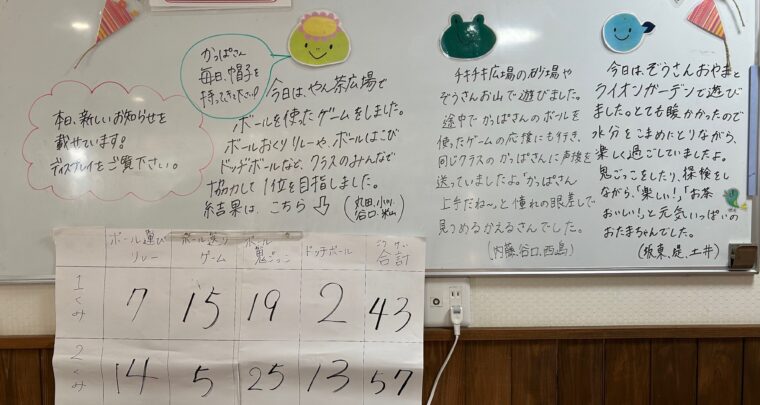 かっぱさん
毎日、帽子を
持ってきて下さい!
本日、新しいお知らせを
載せています!
ディスプレイをご覧下さい。
今日は、やん茶広場で
ボールを使ったゲームをしました。
ボールおくりリレーや、ボールはこび
ドッヂボールなど、クラスのみんなで
協力して1位を目指しました。
結果は、こちら⇩
(丸田、小川
谷口、米山)
チキチキ広場の砂場や
ぞうさんお山で遊びました。
途中でかっぱさんのボールを
使ったゲームの応援にも行き、
同じクラスのかっぱさんに声援を
送っていましたよ。「かっぱさん
上手だね〜」と憧れの眼差しで
見つめるかえるさんでした。
(内藤、谷口、西島)
今日は、ぞうさんおやまと
ライオンガーデンで遊び
ました。とても暖かかったので
水分をこまめにとりながら、
楽しく過ごしていましたよ。
鬼ごっこをしたり、探検をし
ながら、「楽しい!」「お茶
おいしい!」と元気いっぱいの
おたまちゃんでした。
(坂東、堤、土井)
ボール運び
リレー
ボール送り
ゲーム
ボール
鬼ごっこ
ドッチボール
ごうけい
合計
1くみ 7 15 19 2 43
2くみ 14 5 25 13 57